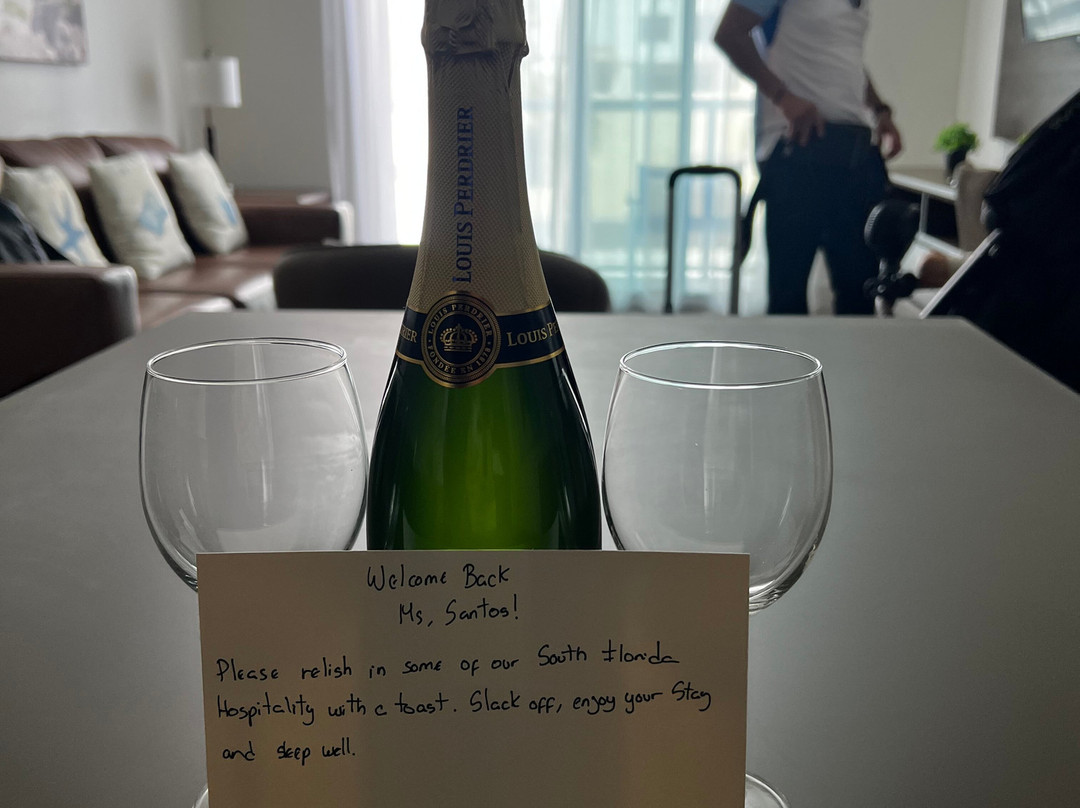 LOUIS PERDRIER
LOUIS PERDRIER
FONDÉE EN 1878
LOUIS P
Welcome Back
Ms, Santos!
Please relish in some of our South Florida
Hospitality with a toast. Slack off, enjoy your Stay
and sleep well.